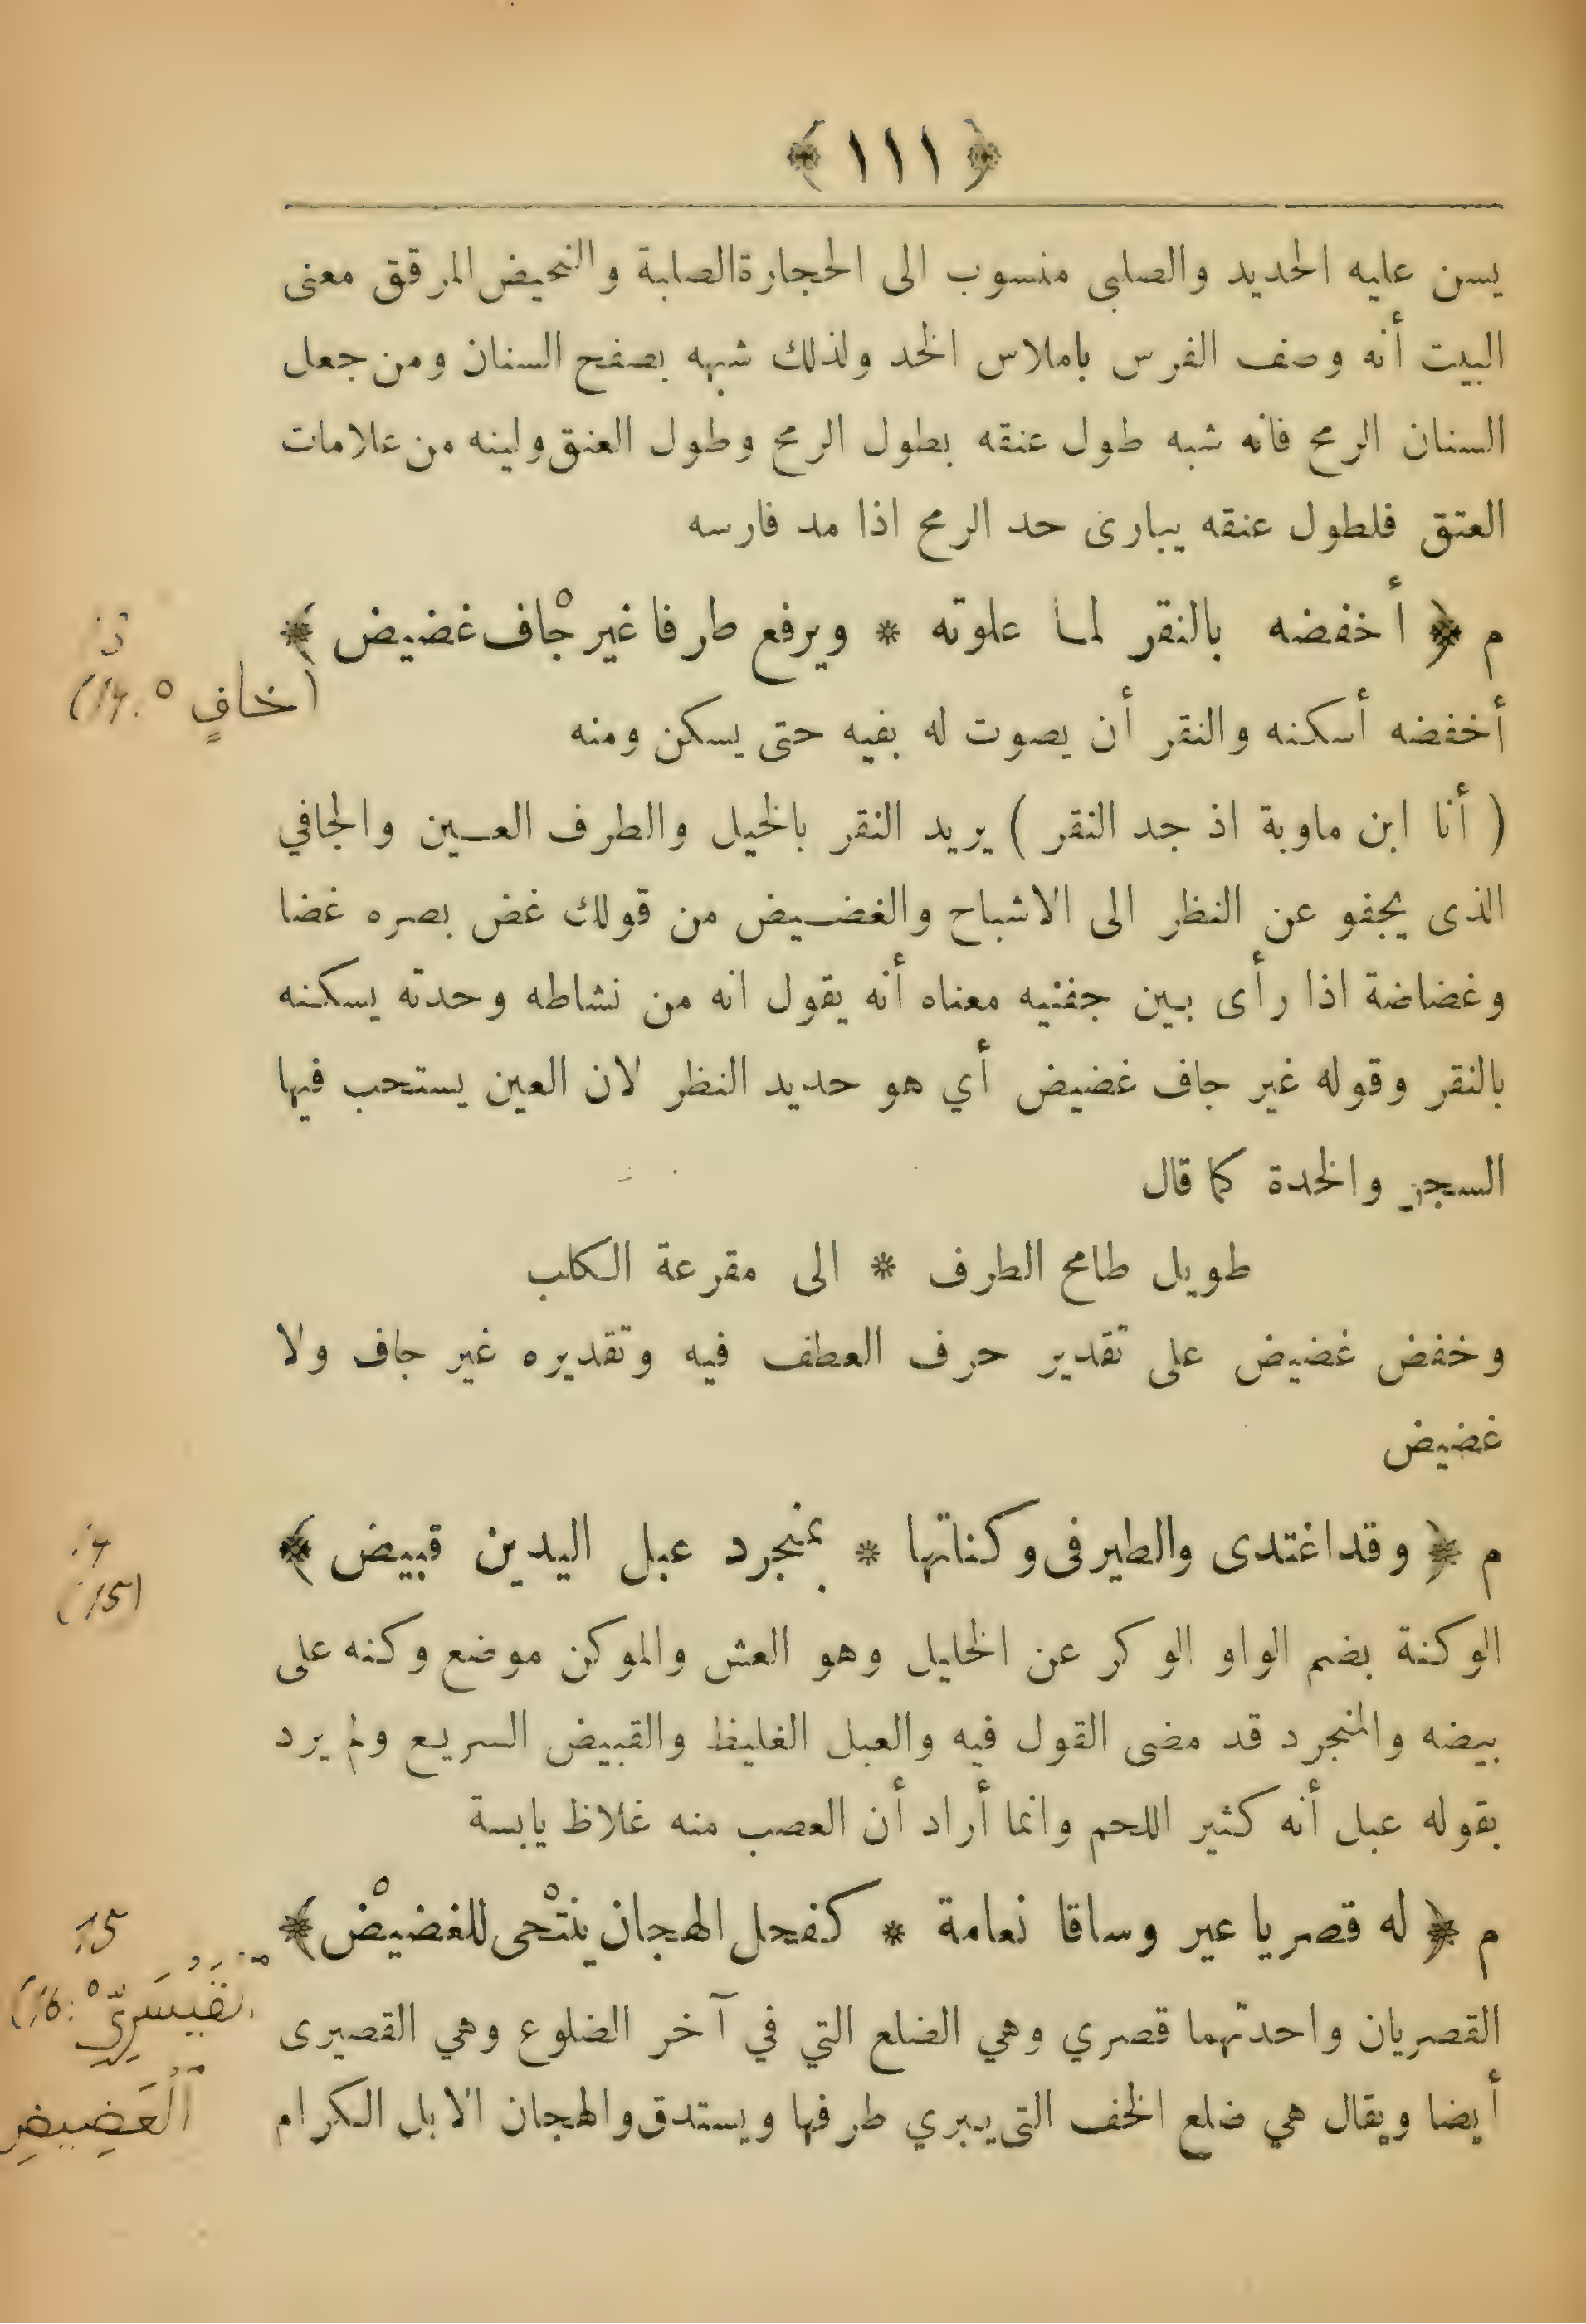 ﴿ ١١١ ﴾
يسن عليه الحديد والصلبى منسوب الى الحجارة الصلبة والنحيض المرقق معنى
البيت أنه وصف الفرس باملاس الخد ولذلك شبهه بصفح السنان ومن جعل
السنان الرمح فانه شبه طول عنقه بطول الرمح وطول العنق ولينه من علامات
العتق فلطول عنقه يبارى حد الرمح اذا مد فارسه
م ﴿ أخفضه بالنقر لما علوته * ويرفع طرفا غير جاف غضيض ﴾
(خافٍ ١٤.)
أخفضه أسكنه والنقر أن يصوت له بفيه حتى يسكن ومنه
( أنا ابن ماوية اذ جد النقر ) يريد النقر بالخيل والطرف العــين والجافي
الذى يجفو عن النظر الى الاشباح والغضــيض من قولك غض بصره غضا
وغضاضة اذا رأى بـين جفنيه معناه أنه يقول انه من نشاطه وحدته يسكنه
بالنقر وقوله غير جاف غضيض أي هو حديد النظر لان العين يستحب فيها
السجز والخدة كما قال
طويل طامح الطرف * الى مقرعة الكلب
وخفض غضيض على تقدير حرف العطف فيه وتقديره غير جاف ولا
غضيض
م ﴿ وقد اغتدى والطير فى وكناتها * بمنجرد عبل اليدين قبيض ﴾
(15)
الوكنة بضم الواو الوكر عن الخليل وهو العش والموكن موضع وكنه على
بيضه والمنجرد قد مضى القول فيه والعبل الغليظ والقبيض السريع ولم يرد
بقوله عبل أنه كثير اللحم وانما أراد أن العصب منه غلاظ يابسة
م ﴿ له قصريا عير وساقا نعامة * كفحل الهجان ينتحى للغضيض ﴾
15
(16.
القصريان واحدتهما قصري وهي الضلع التي في آخر الضلوع وهي القصيرى
أيضا ويقال هي ضلع الخف التى يبري طرفها ويستدق والهجان الابل الكرام
اَلْعَضِيضِ